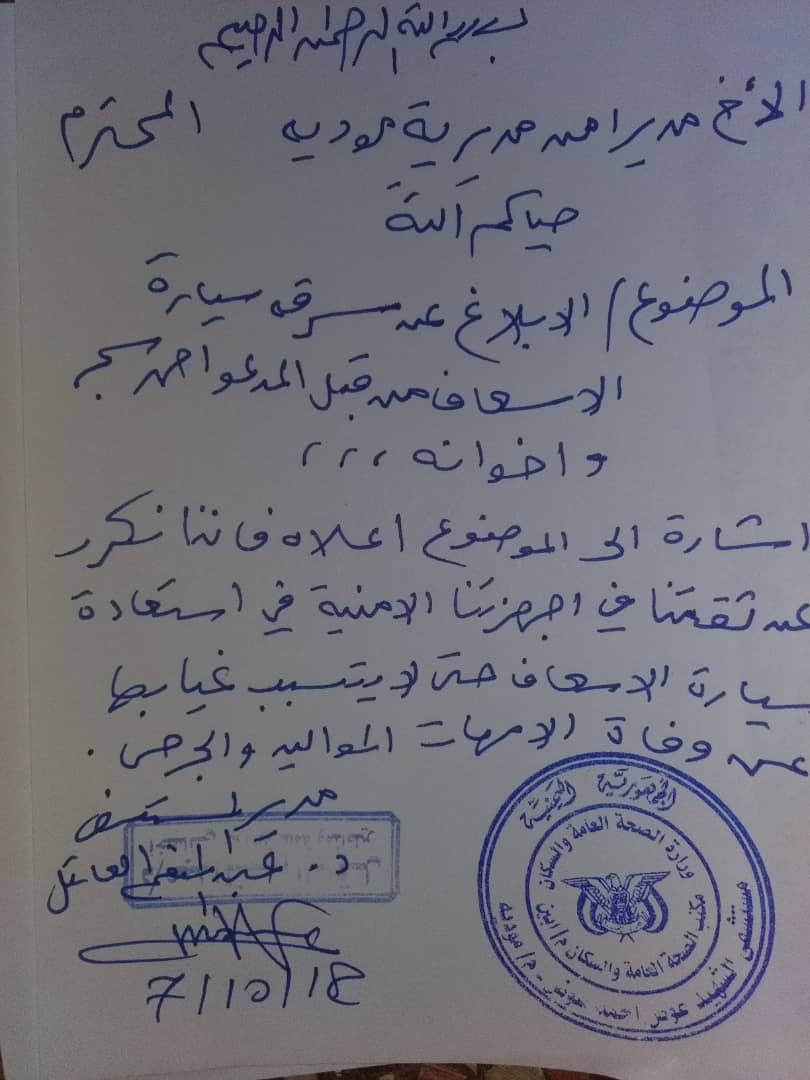 بسم الله الرحمن الرحيم
الأخ مدير امن مديرية موديه المحترم
حياكم الله
الموضوع / الابلاغ عن سرقه سيارة
الاسعاف من قبل المدعو احمد
واخوانه ،،،
اشارة الى الموضوع اعلاه فاننا نكرر
عن ثقتنا في اجهزتنا الامنية في استعادة
سيارة الاسعاف حتى لا يتسبب غيابها
عن وفاة الامهات المواليد والجرحى .
مدير المستشفى
د. عبد
7/10/18
الجمهورية اليمنية
وزارة الصحة العامة والسكان
مكتب الصحة العامة والسكان م/ابين
مستشفى الشهيد عوض احمد - م/ موديه